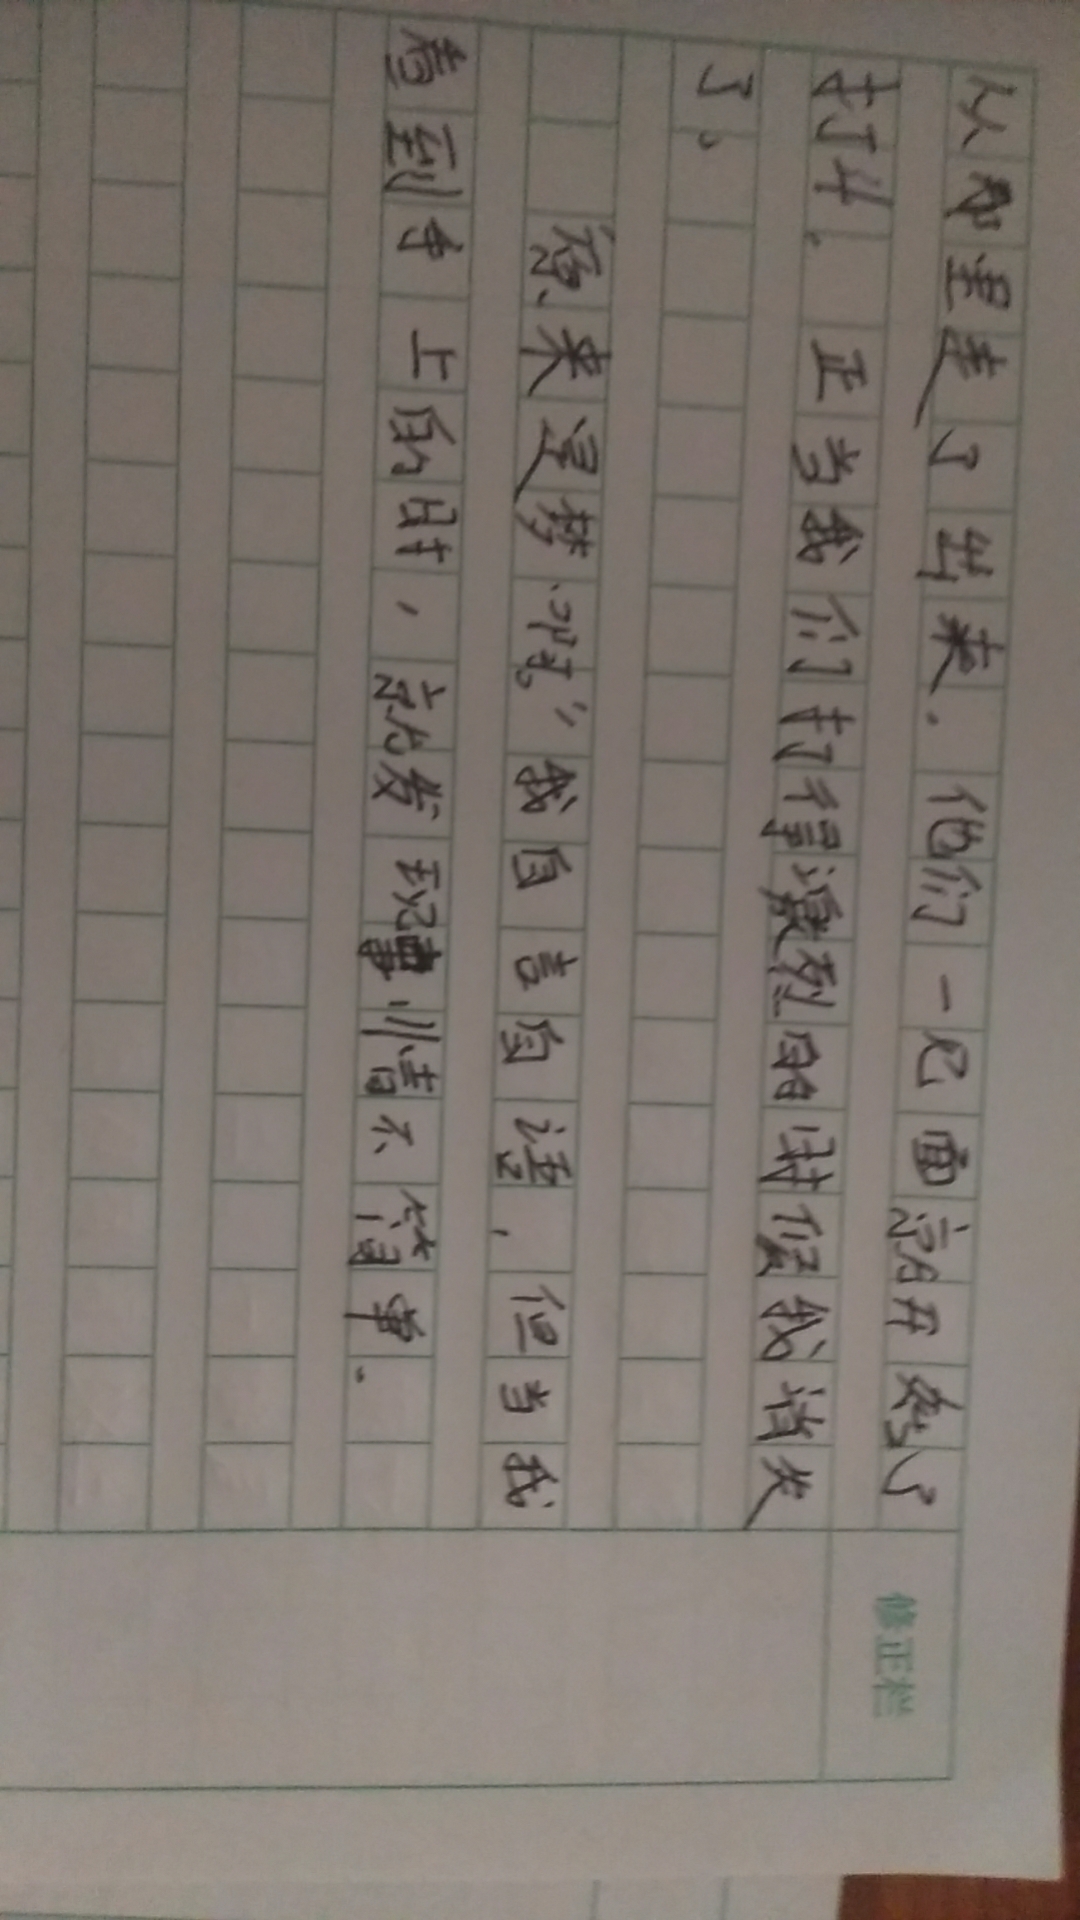 从那里走了出来.他们一见面就开始了
打斗.正当我们打得激烈的时候我消失
了。
原来是梦啊。”我自言自语,但当我
看到手上的时,就发现事情不简单.
修正栏